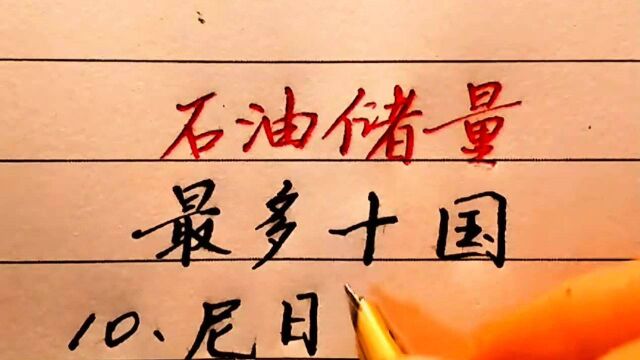 石油储量
最多十国
10、尼日